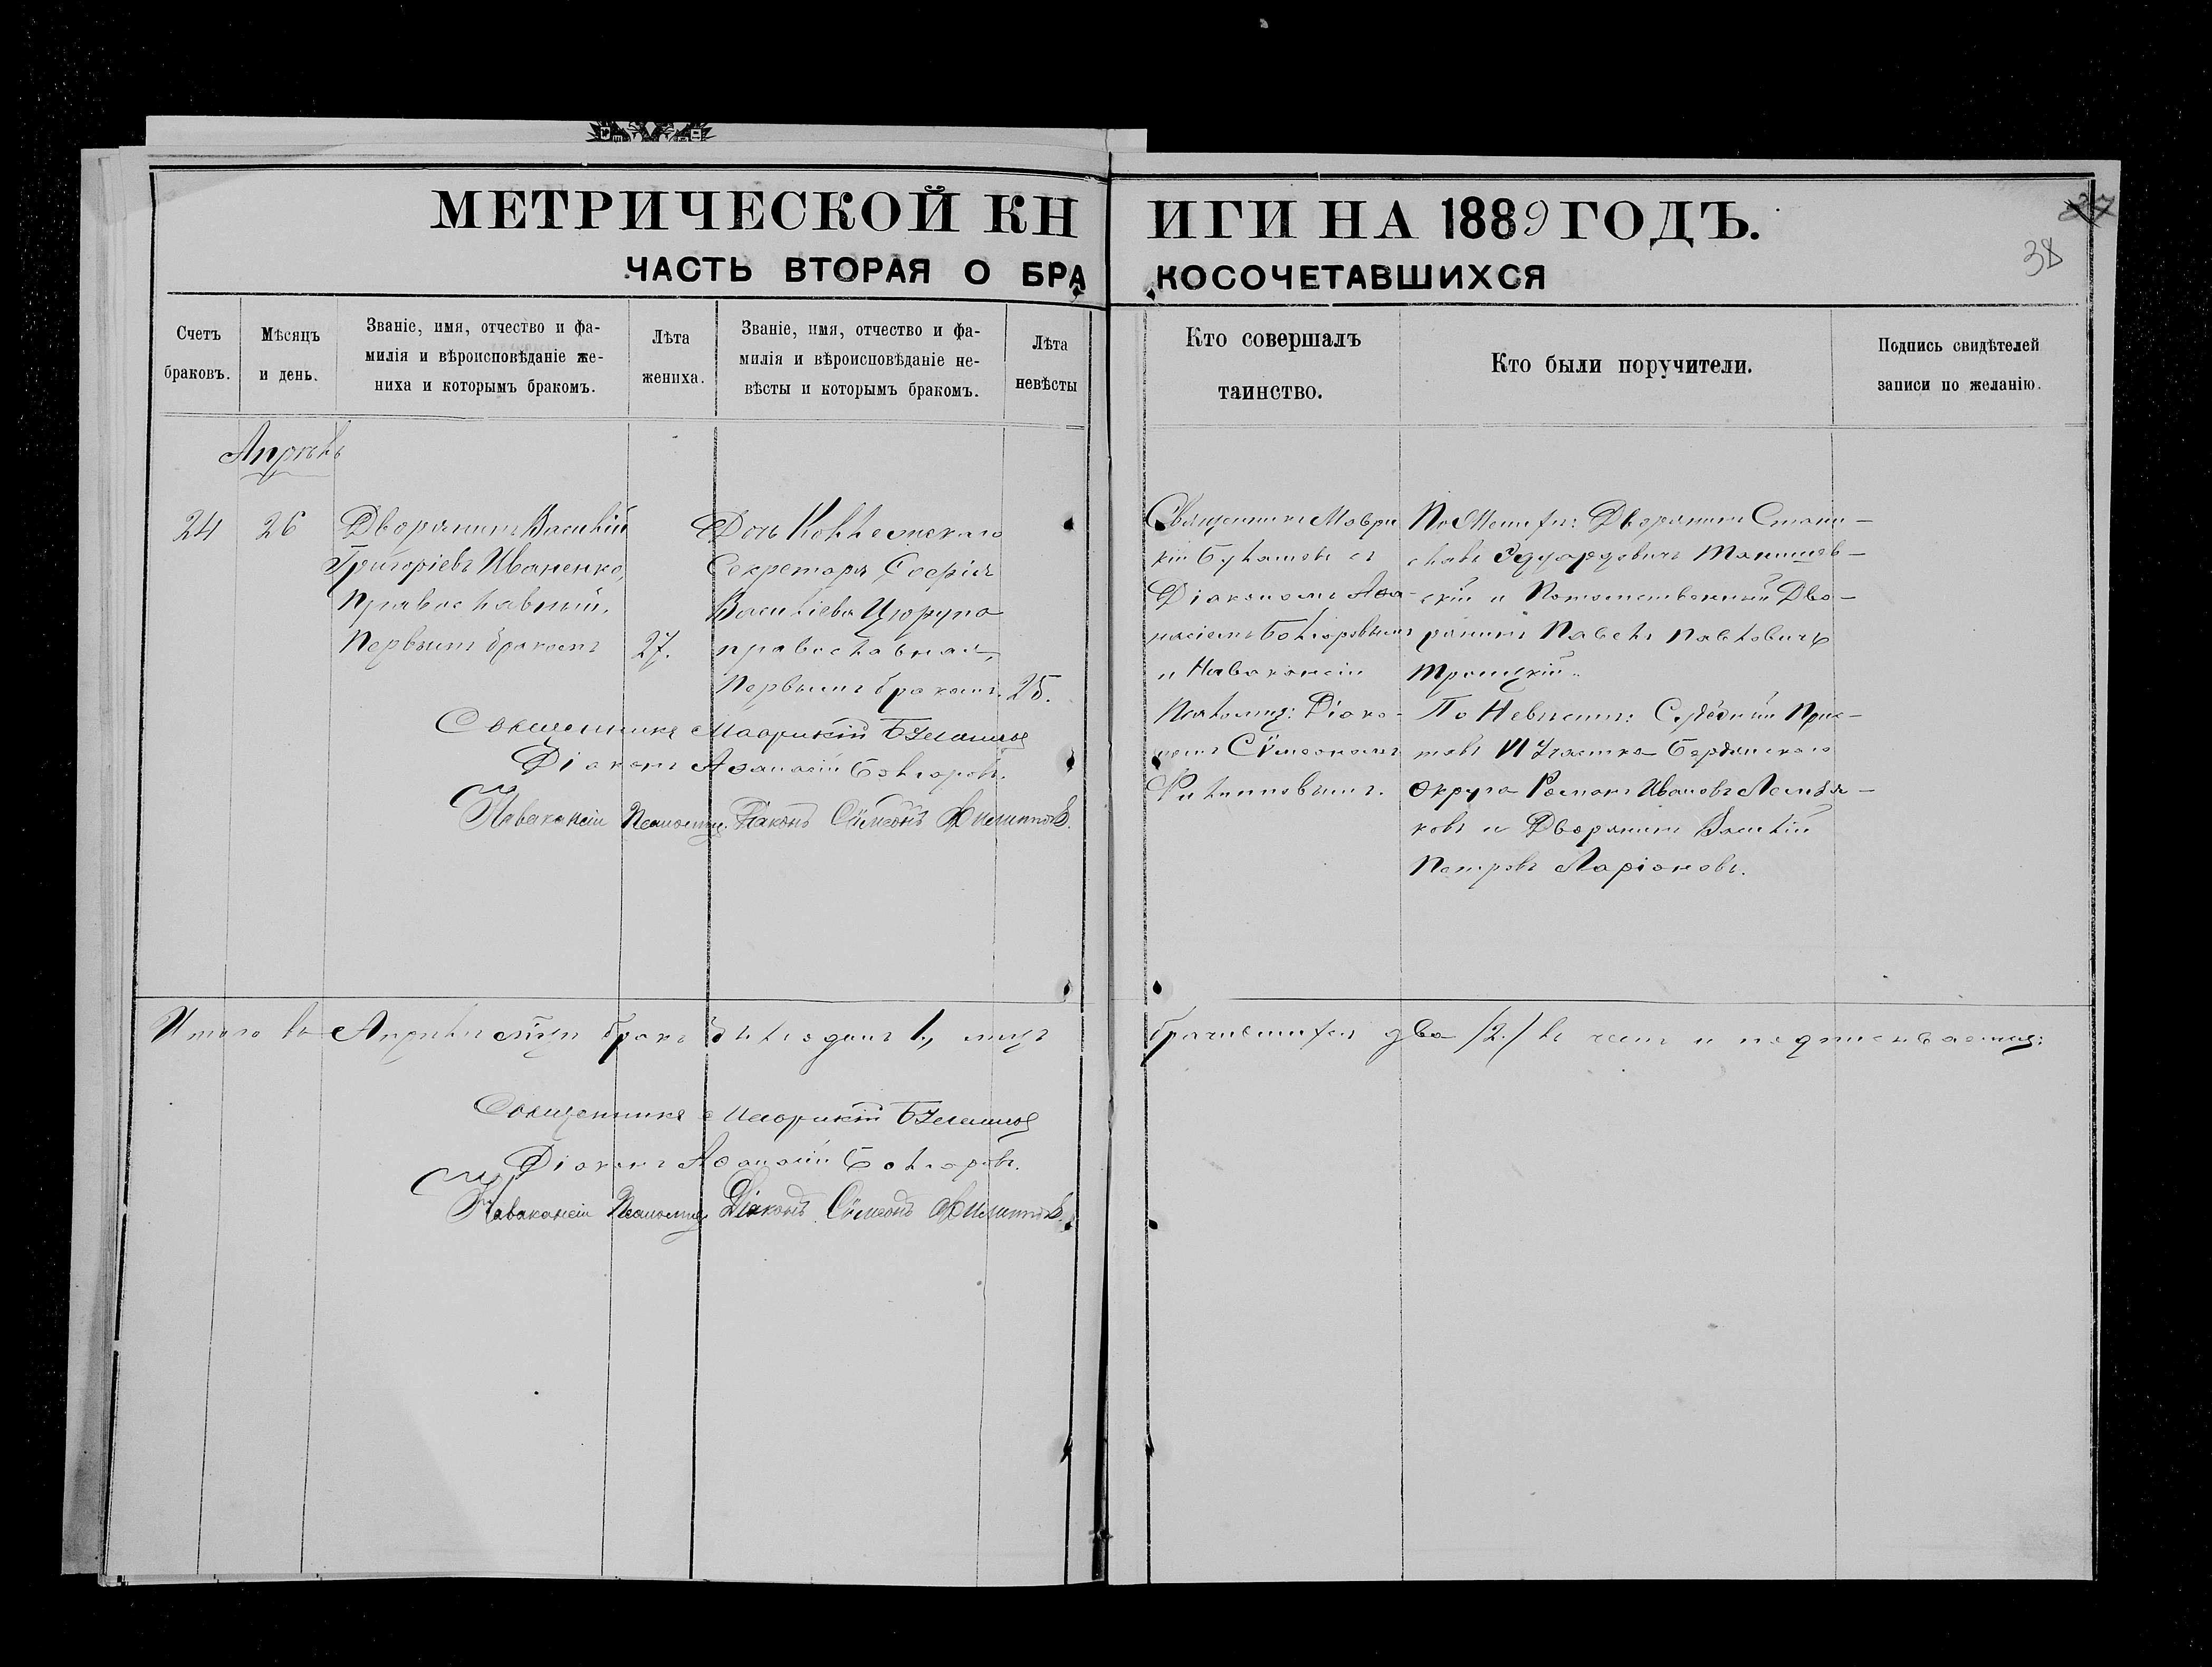 МЕТРИЧЕСКОЙ КНИГИ НА 1889 ГОДЪ.
38
ЧАСТЬ ВТОРАЯ О БРАКОСОЧЕТАВШИХСЯ
Счетъ браковъ.
Мѣсяцъ и день.
Званіе, имя, отчество и фа-
милія и вѣроисповѣданіе же-
ниха и которымъ бракомъ.
Лѣта жениха.
Званіе, имя, отчество и фа-
милія и вѣроисповѣданіе не-
вѣсты и которымъ бракомъ.
Лѣта невѣсты
Кто совершалъ
таинство.
Кто были поручители.
Подпись свидѣтелей
записи по желанію.
Апрѣль
24
26
Дворянинъ Василій
Григоріевъ Иваненко,
православный.
Первымъ бракомъ
27.
Дочь Коллежскаго
Секретаря Софія
Василіева Цюрупа
православная,
Первымъ бракомъ.
25.
Священникъ Маври
кій Булашовъ съ
Діакономъ Аѳа-
насіемъ Болгаровымъ
и Навакансіи
Псаломщ: Діако-
номъ Сѵмеономъ
Филипповымъ.
По Женихѣ: Дворянинъ Стани-
славъ Эдуардовичъ
скій и Потомственный Дво-
рянинъ Павелъ Павловичъ
Троицкій.
По Невѣстѣ: Судебный Прис-
тавъ VI Участка Бердянскаго
Округа Романъ Ивановъ
ковъ и Дворянинъ Василій
Петровъ Ларіоновъ.
Священникъ Маврикій Булашовъ
Діаконъ Аѳанасій Болгаровъ.
Навакансіи Псаломщ. Діаконъ Сѵмеонъ Филипповъ.
Итого въ Апрѣлѣ мѣсяцѣ бракъ былъ одинъ 1, лицъ брачившихся два /2./ въ чемъ и подписываемся:
Священникъ Маврикій Булашовъ
Діаконъ Аѳанасій Болгаровъ.
Навакансіи Псаломщ. Діаконъ Сѵмеонъ Филипповъ.